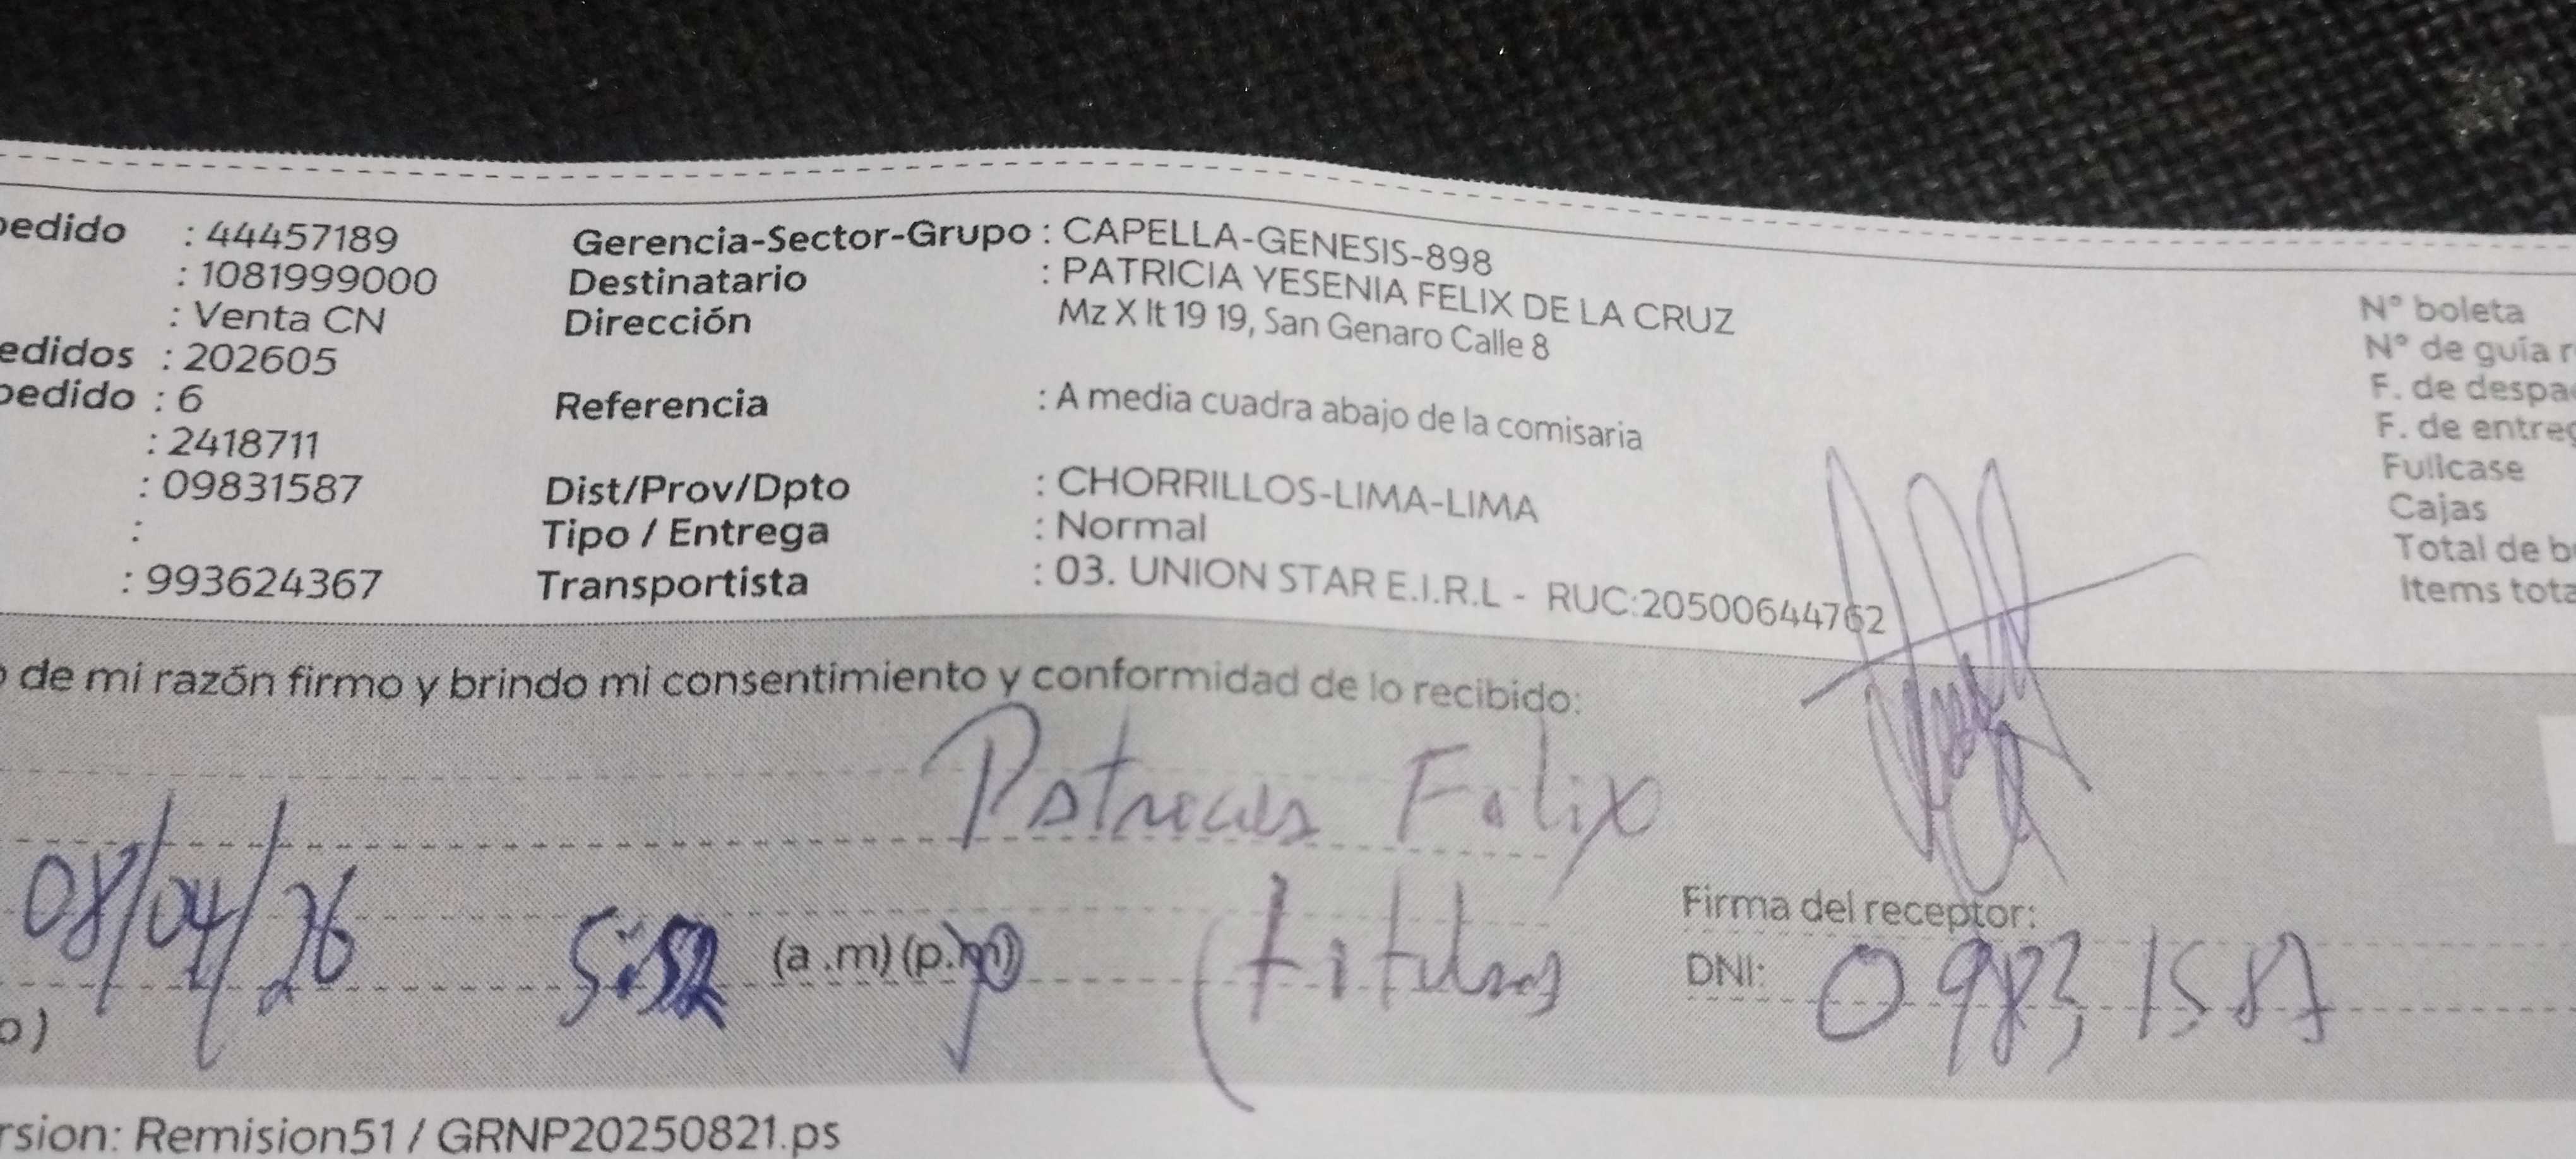 pedido : 44457189 Gerencia-Sector-Grupo : CAPELLA-GENESIS-898
: 1081999000 Destinatario : PATRICIA YESENIA FELIX DE LA CRUZ
: Venta CN Dirección Mz X lt 19 19, San Genaro Calle 8
edidos : 202605
pedido : 6 Referencia : A media cuadra abajo de la comisaria
: 2418711
: 09831587 Dist/Prov/Dpto : CHORRILLOS-LIMA-LIMA
: Tipo / Entrega : Normal
: 993624367 Transportista : 03. UNION STAR E.I.R.L - RUC:20500644762
Nº boleta
Nº de guía r
F. de despa
F. de entreg
Fullcase
Cajas
Total de b
Items tota
o de mi razón firmo y brindo mi consentimiento y conformidad de lo recibido:
Patricia Felix
08/04/26 5:52 (a .m) (p.m) (titular)
Firma del receptor:
DNI: 09831587
o)
rsion: Remision51 / GRNP20250821.ps